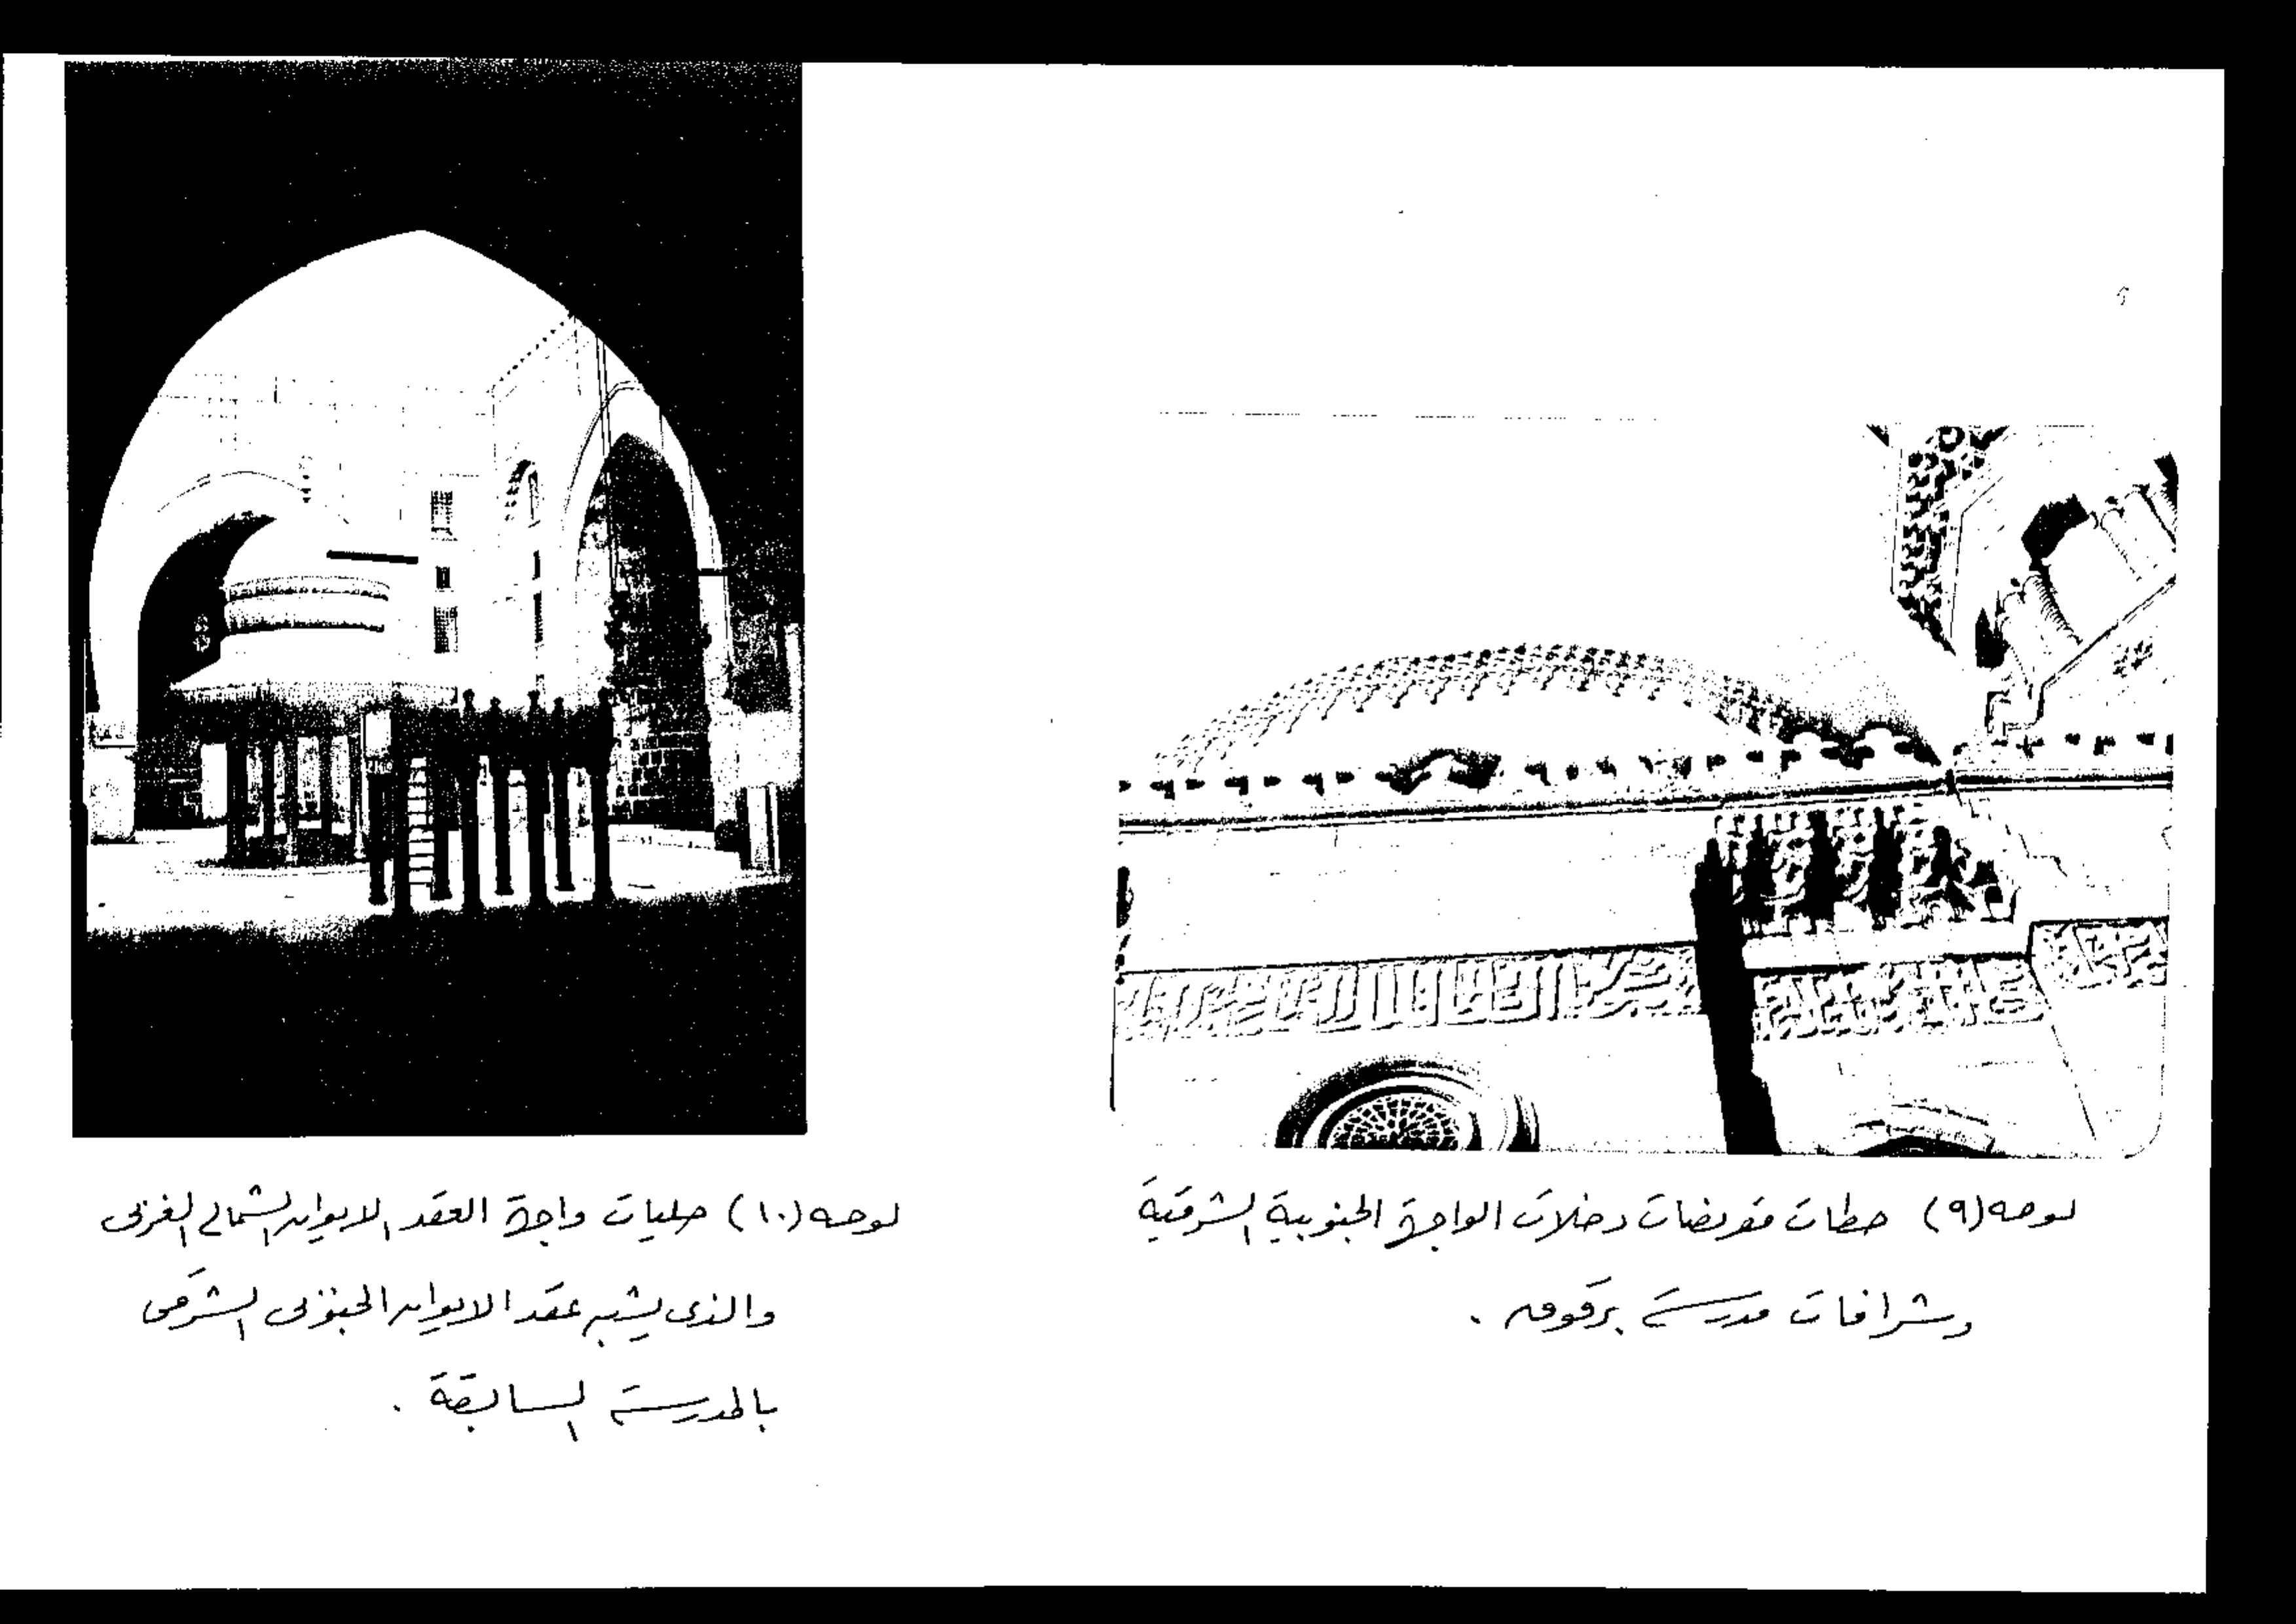 لوحه (٩) حطات مقرنصات دخلات الواجهة الجنوبية الشرقية
وشرافات مدرسة برقوق .
لوحه (١٠) حليات واجهة العقد الايوان الشمالى الغربى
والذى يشبه عقد الايوان الجنوبى الشرقى
بالمدرسة السابقة .